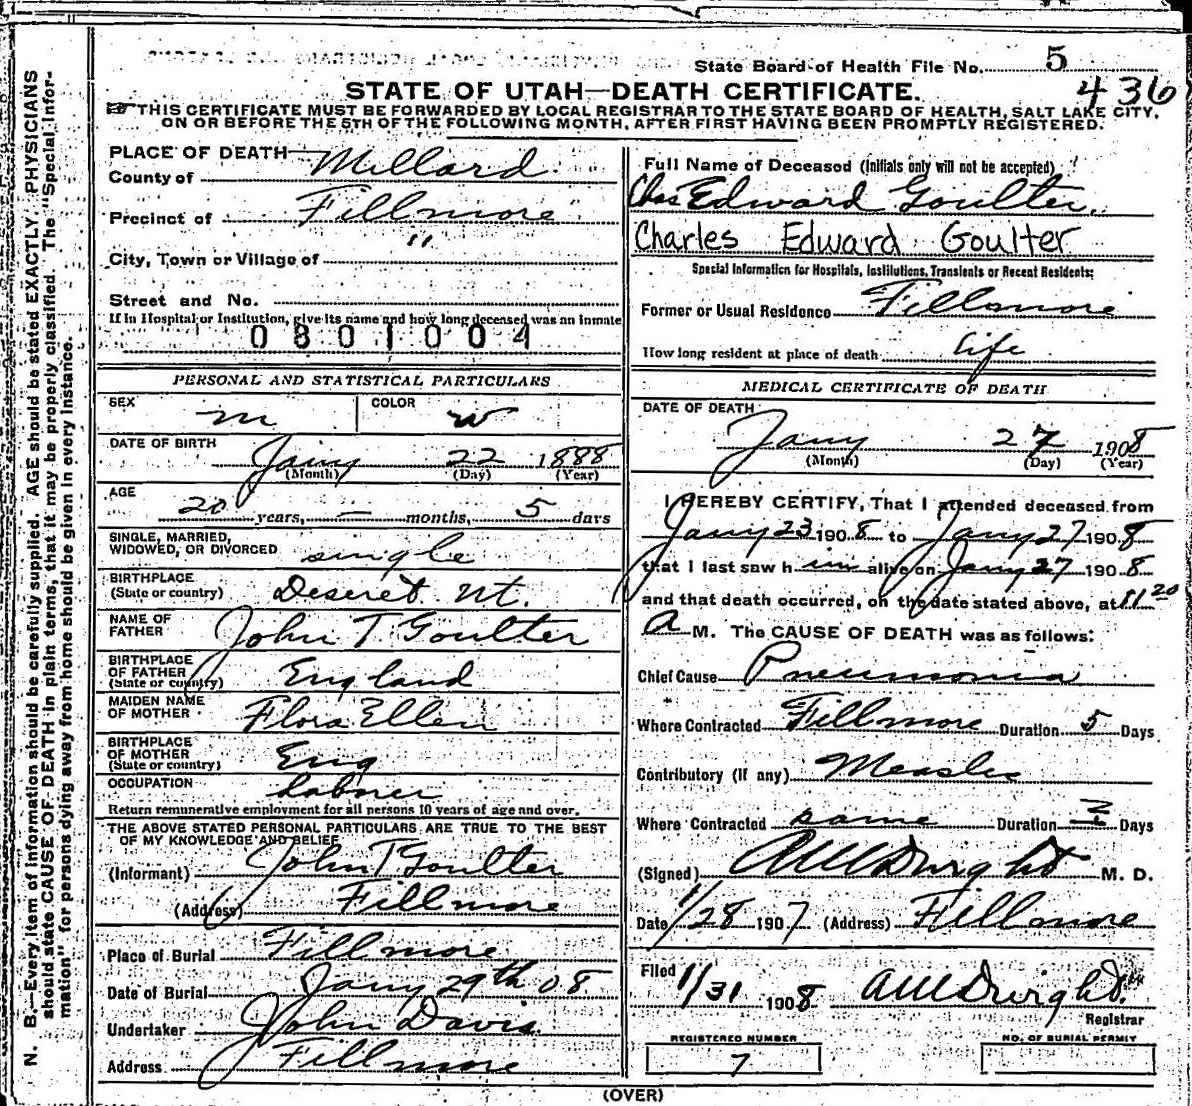 State Board of Health File No. 5
436
STATE OF UTAH—DEATH CERTIFICATE.
THIS CERTIFICATE MUST BE FORWARDED BY LOCAL REGISTRAR TO THE STATE BOARD OF HEALTH, SALT LAKE CITY,
ON OR BEFORE THE 5TH OF THE FOLLOWING MONTH, AFTER FIRST HAVING BEEN PROMPTLY REGISTERED.
N. B.—Every item of information should be carefully supplied. AGE should be stated EXACTLY. PHYSICIANS
should state CAUSE OF DEATH in plain terms, that it may be properly classified. The "Special Infor-
mation" for persons dying away from home should be given in every instance.
PLACE OF DEATH—
County of Millard
Precinct of Fillmore
City, Town or Village of "
Street and No.
If in Hospital or Institution, give its name and how long deceased was an inmate
0801004
PERSONAL AND STATISTICAL PARTICULARS
SEX m COLOR w
DATE OF BIRTH Jany 22 1888
(Month) (Day) (Year)
AGE
20 years, — months, 5 days
SINGLE, MARRIED,
WIDOWED, OR DIVORCED single
BIRTHPLACE
(State or country) Deseret Ut.
NAME OF
FATHER John T Goulter
BIRTHPLACE
OF FATHER
(State or country) England
MAIDEN NAME
OF MOTHER Flora Ellen
BIRTHPLACE
OF MOTHER
(State or country) Eng
OCCUPATION Labner
Return remunerative employment for all persons 10 years of age and over.
THE ABOVE STATED PERSONAL PARTICULARS ARE TRUE TO THE BEST
OF MY KNOWLEDGE AND BELIEF
(Informant) John T Goulter
(Address) Fillmore
Place of Burial Fillmore
Date of Burial Jany 29th 08
Undertaker John Davis
Address Fillmore
Full Name of Deceased (Initials only will not be accepted)
Chas Edward Goulter.
Charles Edward Goulter
Special Information for Hospitals, Institutions, Transients or Recent Residents:
Former or Usual Residence Fillmore
How long resident at place of death life
MEDICAL CERTIFICATE OF DEATH
DATE OF DEATH
Jany 27 1908
(Month) (Day) (Year)
I HEREBY CERTIFY, That I attended deceased from
Jany 23 1908 to Jany 27 1908
that I last saw him alive on Jany 27 1908
and that death occurred, on the date stated above, at 11 20
A M. The CAUSE OF DEATH was as follows:
Chief Cause Pneumonia
Where Contracted Fillmore Duration 5 Days
Contributory (If any) Measles
Where Contracted same Duration Days
(Signed) AWDwight M. D.
Date 1/28 1907 (Address) Fillmore
Filed 1/31 1908 AWDwight
Registrar
REGISTERED NUMBER
7
NO. OF BURIAL PERMIT
(OVER)